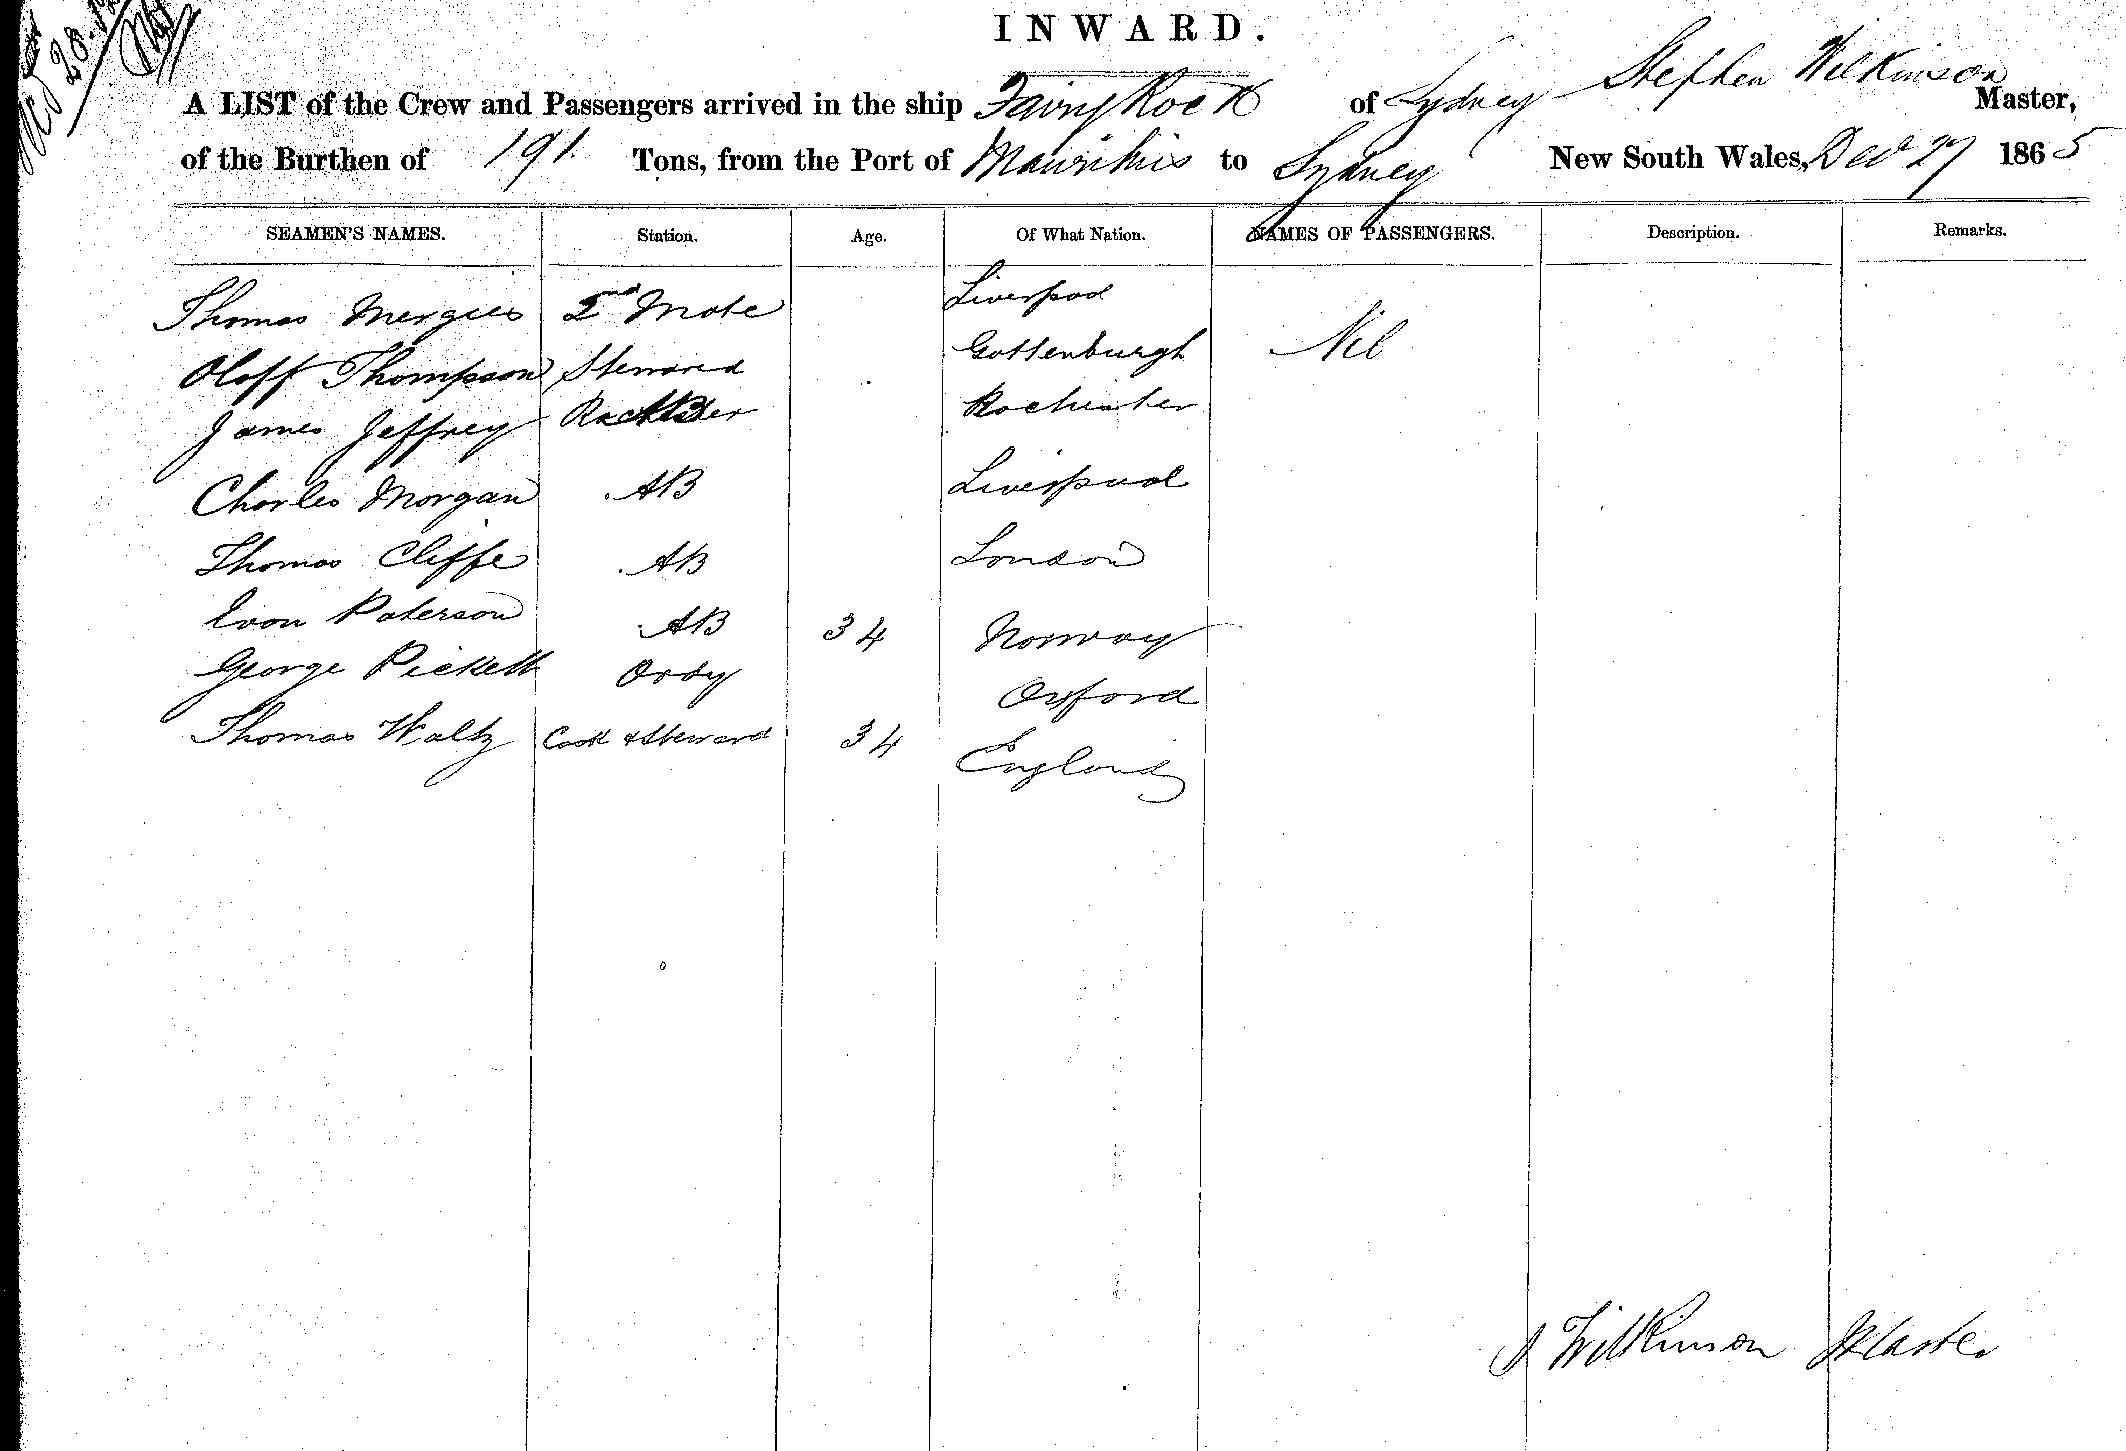 INWARD.
A LIST of the Crew and Passengers arrived in the ship Fairy Rock of Sydney Stephen Wilkinson Master,
of the Burthen of 191 Tons, from the Port of Mauritius to Sydney New South Wales, Dec 27 1865
SEAMEN'S NAMES. Station. Age. Of What Nation. NAMES OF PASSENGERS. Description. Remarks.
Thomas 2nd Mate Liverpool Nil
Oloff Thompson Steward Gottenburgh
James Jeffrey AB Rochester
Charles Morgan AB Liverpool
Thomas Cliffe AB London
Evon Paterson AB 34 Norway
George Pickett Ordy Oxford
Thomas Waltz Cook & Steward 34 England
S Wilkinson Master